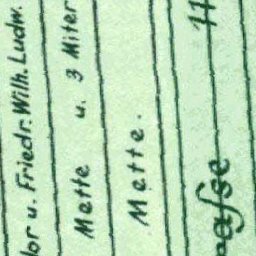 lor u. Friedr. Wilh. Ludw.
Mette u. 3 Miter
Mette.